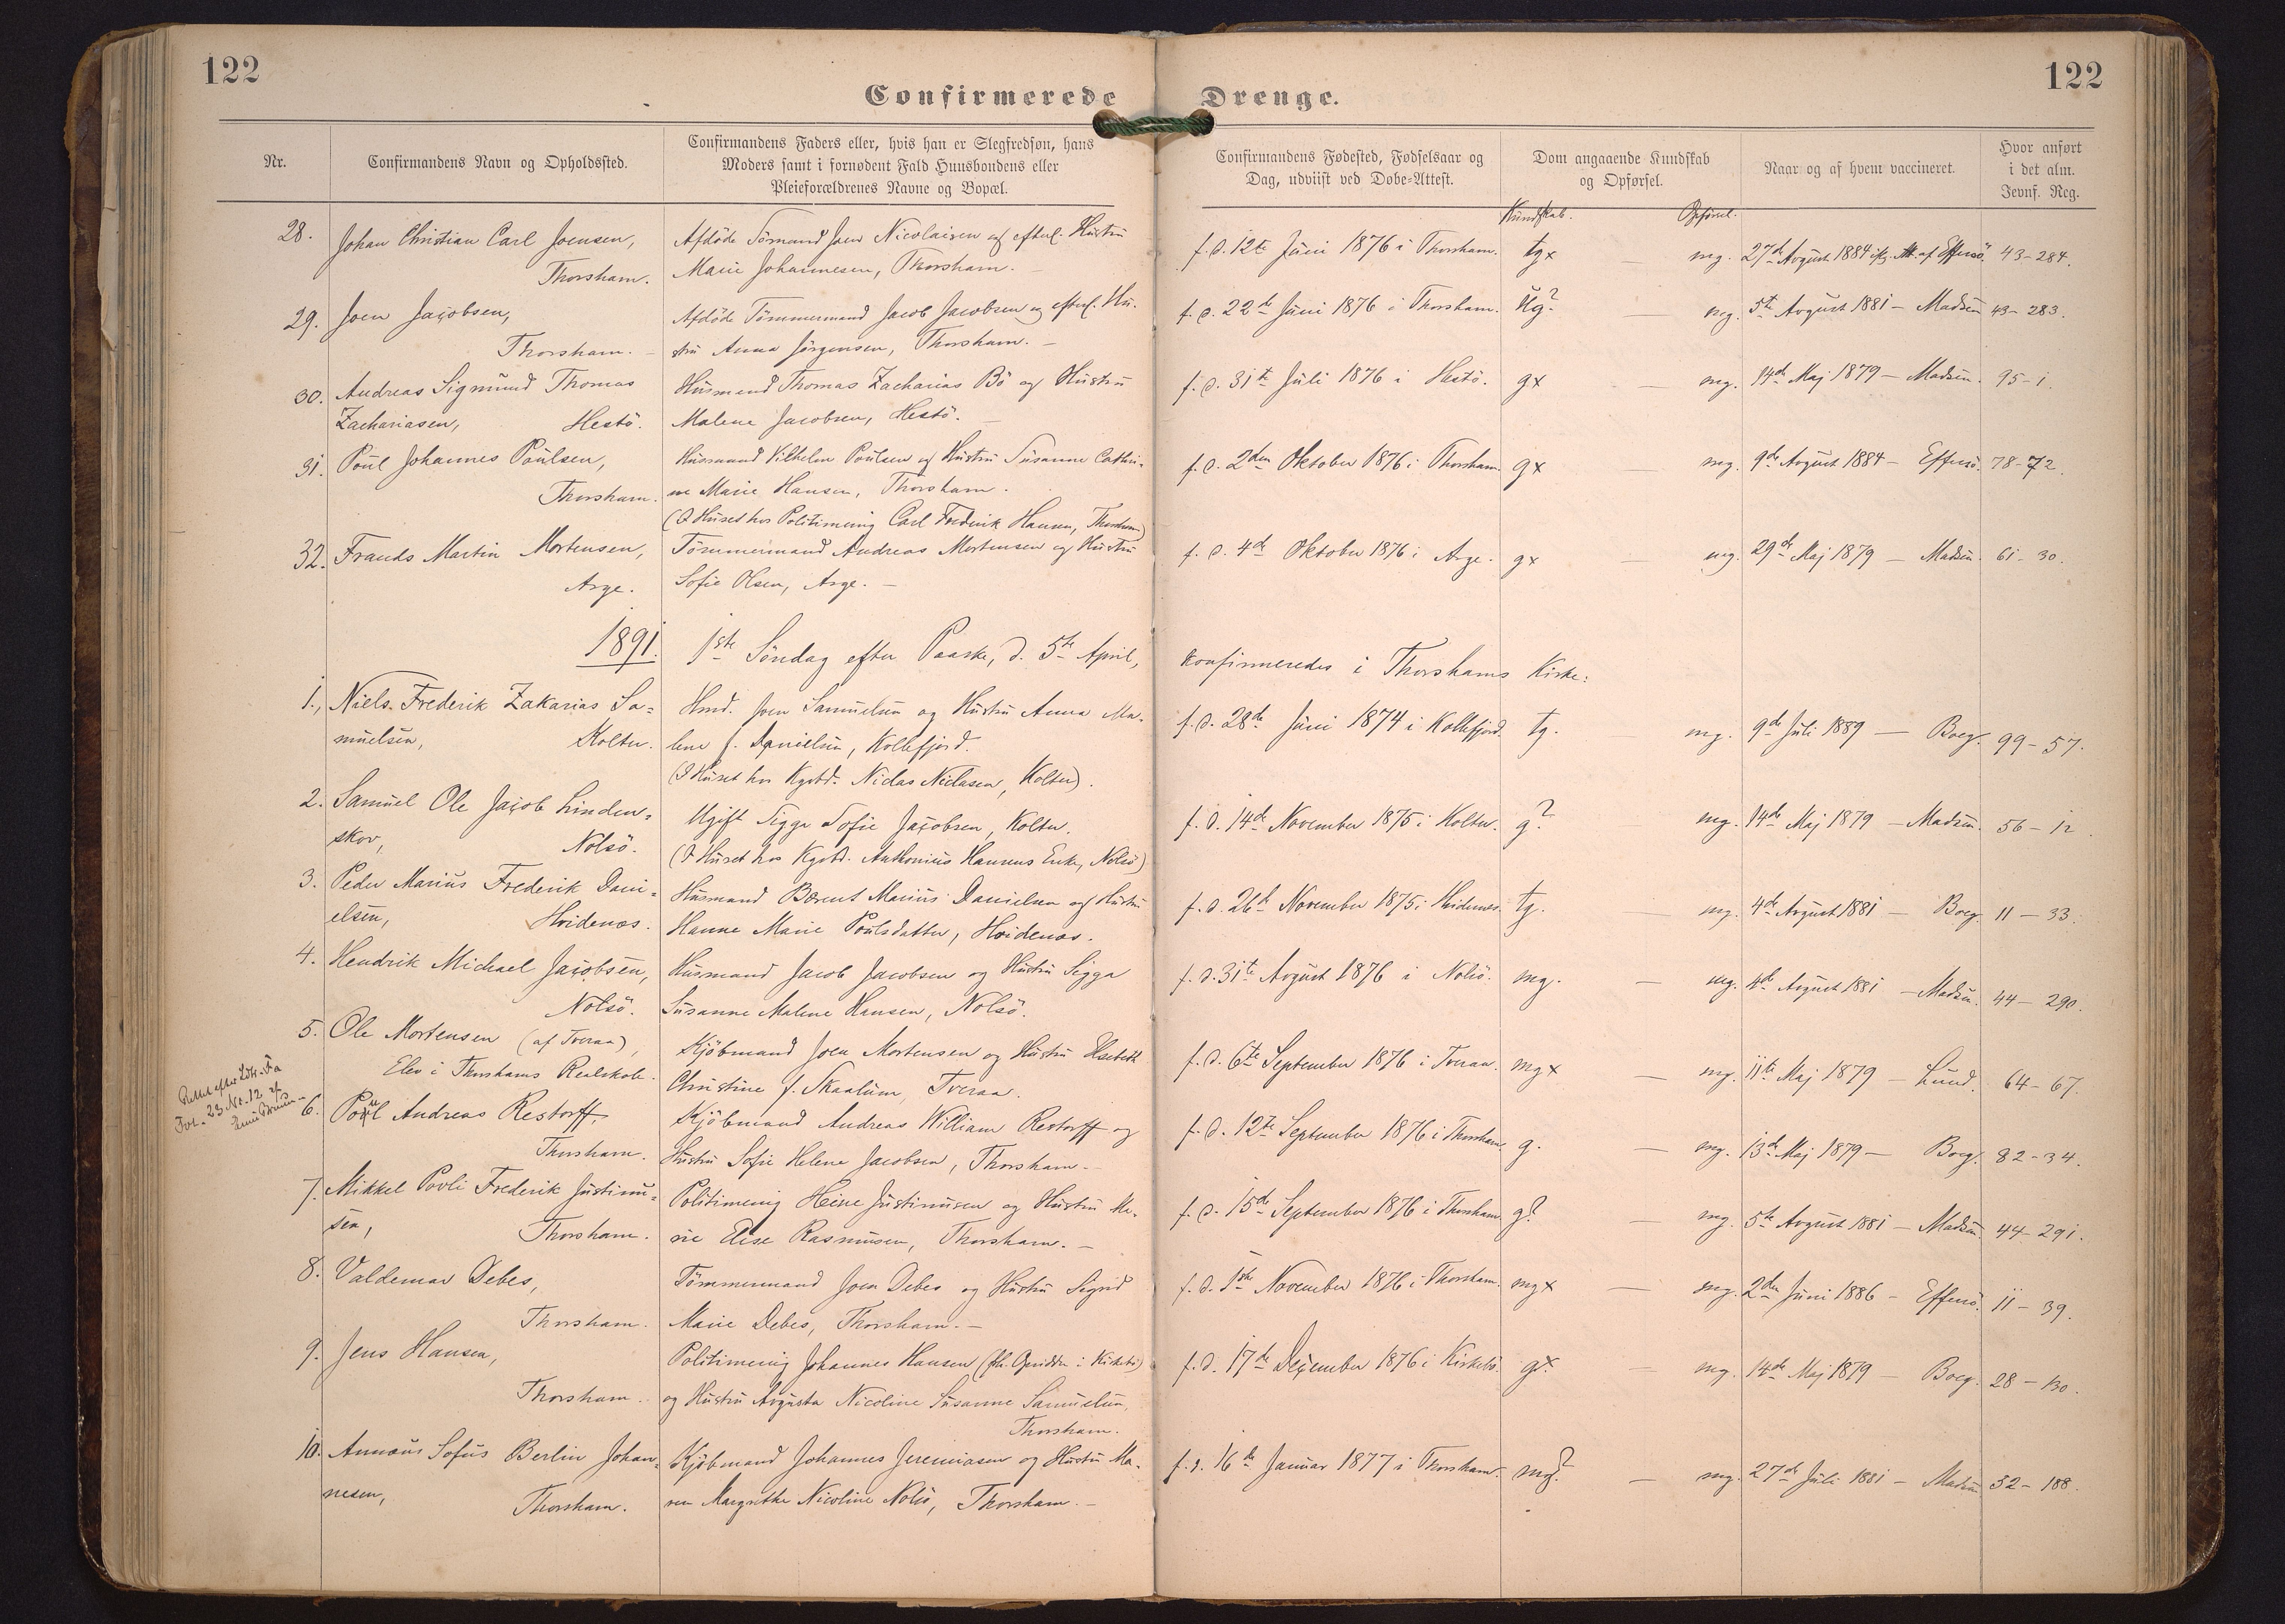 122
122
Confirmerede Drenge.
Nr.
Confirmandens Navn og Opholdssted.
Confirmandens Faders eller, hvis han er Slegfredsøn, hans
Moders samt i fornødent Fald Huusbondens eller
Pleieforældrenes Navne og Bopæl.
Confirmandens Fødested, Fødselsaar og
Dag, udviist ved Døbe-Attest.
Dom angaaende Kundskab
og Opførsel.
Naar og af hvem vaccineret.
Hvor anført
i det alm.
Jevnf. Reg.
Kundskab. Opførsel.
28. Johan Christian Carl Joensen,
Thorsham.
Afdöde Sömand Joen Nicolaisen og efterl. Hustru
Marie Johannesen, Thorsham.
f. d. 12te Juni 1876 i Thorsham. tgx — mg. 27de August 1884 Att. af Effersö. 43-284.
29. Joen Jacobsen,
Thorsham. —
Afdöde Tömmermand Jacob Jacobsen og efterl. Hu-
stru Anna Jörgensen, Thorsham. —
f. d. 22de Juni 1876 i Thorsham. ug? — mg. 5te August 1881 — Madsen 43-283.
30. Andreas Sigmund Thomas
Zachariasen, Hestö.
Husmand Thomas Zacharias Bö og Hustru
Malene Jacobsen, Hestö. —
f. d. 31te Juli 1876 i Hestö. gx — mg. 14de Maj 1879 — Madsen. 95-1.
31. Poul Johannes Poulsen,
Thorsham.
Husmand Vilhelm Poulsen og Hustru Susanne Cathri-
ne Marie Hansen, Thorsham.
(I Huset hos Politimenig Carl Frederik Hansen, Thorsham)
f. d. 2den Oktober 1876 i Thorsham. gx — mg. 9de August 1884 — Effersö. 78-72.
32. Frands Martin Mortensen,
Arge.
Tömmermand Andreas Mortensen og Hustru
Sofie Olsen, Arge. —
f. d. 4de Oktober 1876 i Arge. gx — mg. 29de Maj 1879 — Madsen. 61-30.
1891. 1ste Söndag efter Paaske, d. 5te April, konfirmeredes i Thorshams Kirke:
1., Niels Frederik Zakarias Sa-
muelsen, Kolter.
Hmd. Joen Samuelsen og Hustru Anna Ma-
lene f. Danielsen, Kollefjord.
(I Huset hos Kgsbd. Niclas Niclasen, Kolter).
f. d. 28de Juni 1874 i Kollefjord. tg. mg. 9de Juli 1889 — Boeg. 99-57.
2. Samuel Ole Jacob Linden-
skov, Nolsö.
Ugift Sigga Sofie Jacobsen, Kolter.
(I Huset hos Kgsbd. Anthonius Hansens Enke, Nolsö)
f. d. 14de November 1875 i Kolter. g? mg. 14de Maj 1879 — Madsen. 56-12.
3. Peder Marius Frederik Dani-
elsen, Hvidenæs.
Husmand Bærent Marius Danielsen og Hustru
Hanne Marie Poulsdatter, Hvidenæs.
f. d. 26de November 1875 i Hvidenæs. tg. — mg. 4de August 1881 — Boeg. 11-33.
4. Hendrik Michael Jacobsen,
Nolsö.
Husmand Jacob Jacobsen og Hustru Sigga
Susanne Malene Hansen, Nolsö.
f. d. 31te August 1876 i Nolsö. mg. — mg. 4de August 1881 — Madsen. 44-290.
5. Ole Mortensen (af Tveraa),
Elev i Thorshams Realskole.
Kjöbmand Joen Mortensen og Hustru Elsebeth
Christine f. Skaalum, Tveraa.
f. d. 6te September 1876 i Tveraa. mgx — mg. 11te Maj 1879 — Lund. 64-67.
Rettet efter
23 Nr. 12
6. Poul Andreas Restorff,
Thorsham.
Kjöbmand Andreas William Restorff og
Hustru Sofie Helene Jacobsen, Thorsham. —
f. d. 12te September 1876 i Thorsham. g. — mg. 13de Maj 1879 — Boeg. 82-34.
7. Mikkel Povli Frederik Justinu-
sen, Thorsham.
Politimenig Heine Justinusen og Hustru Ma-
rie Elise Rasmussen, Thorsham. —
f. d. 15de September 1876 i Thorsham. g? — mg. 5te August 1881 — Madsen. 44-291.
8. Valdemar Debes,
Thorsham.
Tömmermand Joen Debes og Hustru Sigrid
Marie Debes, Thorsham. —
f. d. 1ste November 1876 i Thorsham. mgx — mg. 2den Juni 1886 — Effersö. 11-39.
9. Jens Hansen,
Thorsham.
Politimenig Johannes Hansen i Kirkebö)
og Hustru Augusta Nicoline Susanne Samuelsen,
Thorsham.
f. d. 17de December 1876 i Kirkebö. gx. — mg. 14de Maj 1879 — Boeg. 28-130.
10. Annæus Sofus Berlin Johan-
nesen, Thorsham.
Kjöbmand Johannes Jeremiasen og Hustru Ma-
ren Margrethe Nicoline Nolsö, Thorsham. —
f. d. 16de Januar 1877 i Thorsham. mg? — mg. 27de Juli 1881 — Madsen 32-188.